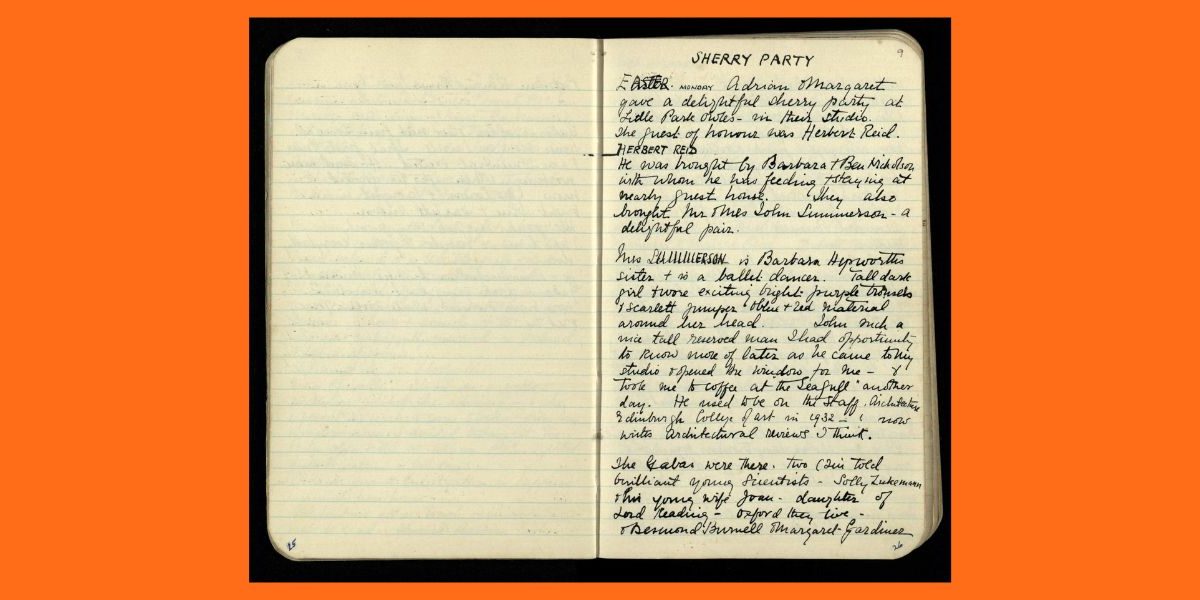 9
SHERRY PARTY
EASTER. MONDAY Adrian & Margaret
gave a delightful sherry party at
Little Park Owles - in their studio.
The guest of honour was Herbert Reid.
HERBERT REID
He was brought by Barbara + Ben Nicholson
with whom he was feeding + staying at
nearby guest house. They also
brought Mr & Mrs John Summerson - a
delightful pair.
Mrs SUMMERSON is Barbara Hepworth's
sister + is a ballet dancer. Tall dark
girl & wore exciting bright purple trousers
& scarlett jumper & blue + red material
around her head. John such a
nice tall reserved man I had opportunity
to know more of later as he came to my
studio & opened the window for me - &
took me to coffee at the "Seagull" another
day. He used to be on the Staff. Architecture
Edinburgh College of art in 1932 - & now
writes Architectural reviews I think.
The Gabos were there. Two (I'm told
brilliant young scientists - Solly Zukermann
& his young wife Joan - daughter of
Lord Reading - Oxford they live -
& Desmond Burnell & Margaret Gardiner
25
26